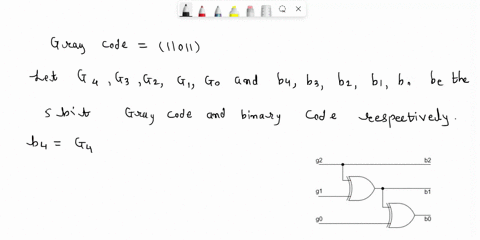 Gray code = (11011)
Let G4, G3, G2, G1, G0 and b4, b3, b2, b1, b0 be the
5 bit Gray code and binary code respectively.
b4 = G4
g2 b2
g1 b1
g0 b0